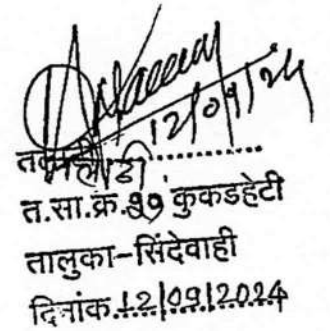 12/09/24
तलाठी
त.सा.क्र.११ कुकडहेटी
तालुका-सिंदेवाही
दिनांक.12/09/2024